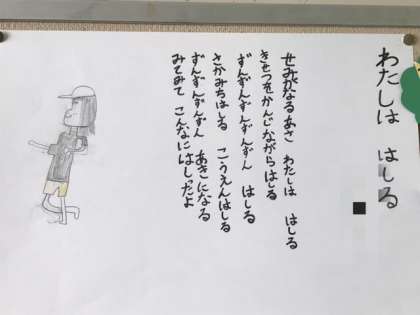 わたしは はしる
せみがなるあさ わたしは はしる
きせつをかんじながらはしる
ずんずんずんずんずん はしる
さかみちはしる こうえんはしる
ずんずんずんずん あきになる
みてみて こんなにはしったよ